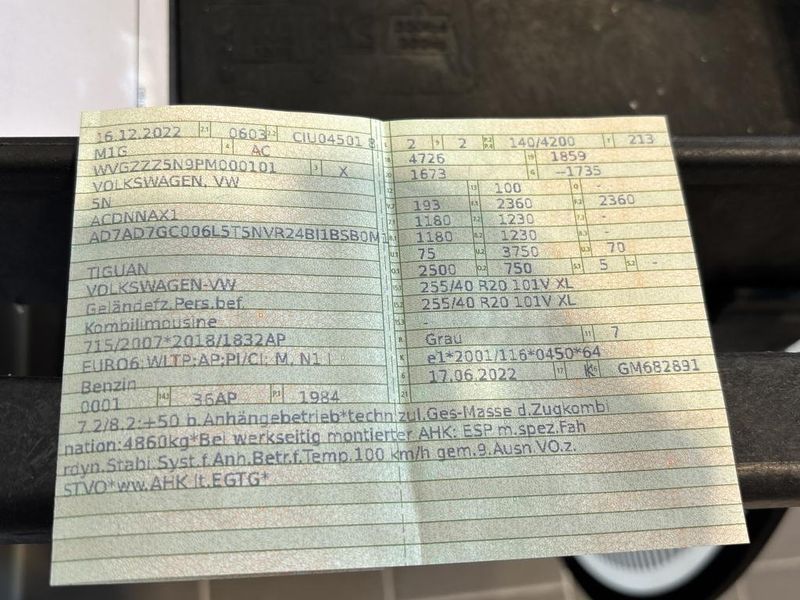 16.12.2022 0603 CIU04501 8
M1G AC
WVGZZZ5N9PM000101 X
VOLKSWAGEN, VW
5N
ACDNNAX1
AD7AD7GC006L5T5NVR24BI1BSB0M1
TIGUAN
VOLKSWAGEN-VW
Geländefz.Pers.bef.
Kombilimousine
715/2007*2018/1832AP
EURO6;WLTP;AP;PI/CI; M, N1 I
Benzin
0001 36AP 1984
2 2 140/4200 213
4726 1859
1673 --1735
- 100 -
193 2360 2360
1180 1230 -
1180 1230 -
75 3750 70
2500 750 5 -
255/40 R20 101V XL
255/40 R20 101V XL
-
Grau 7
e1*2001/116*0450*64
17.06.2022 K GM682891
7.2/8.2:+50 b.Anhängebetrieb*techn.zul.Ges-Masse d.Zugkombi
nation:4860kg*Bei werkseitig montierter AHK: ESP m.spez.Fah
rdyn.Stabi.Syst.f.Anh.Betr.f.Temp.100 km/h gem.9.Ausn.VO.z.
STVO*ww.AHK lt.EGTG*